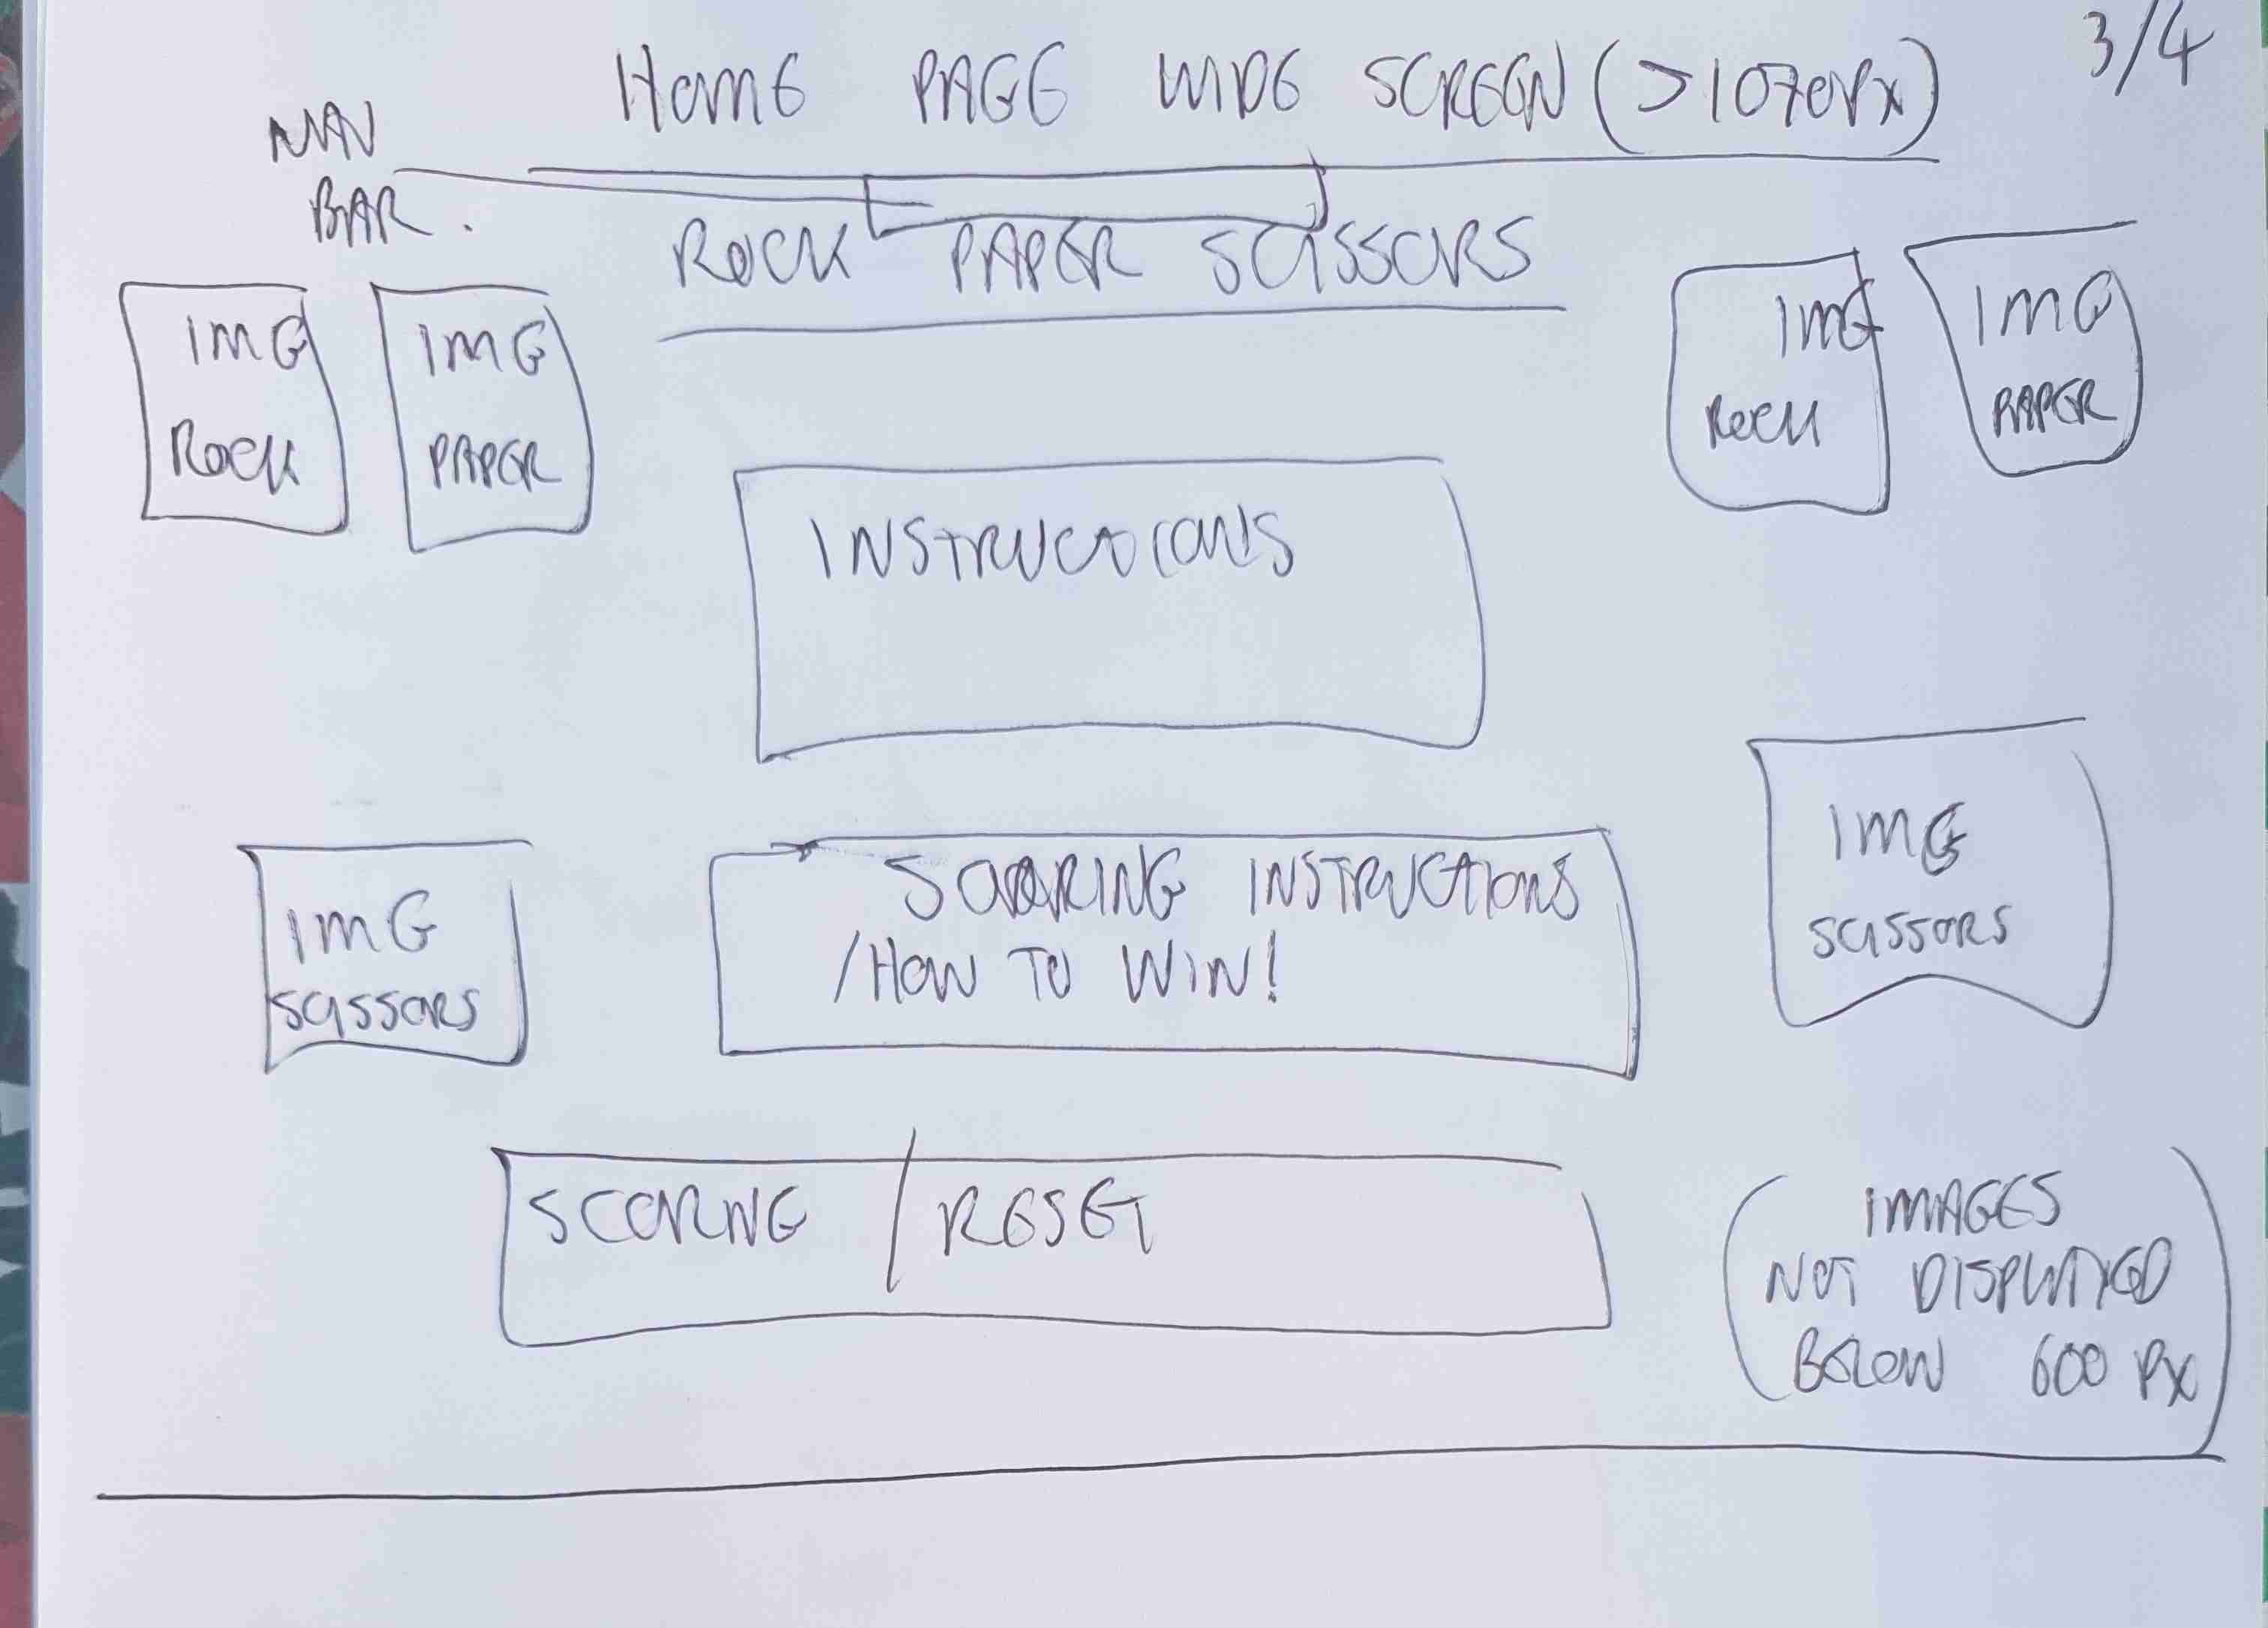 HOME PAGE WIDE SCREEN (>1070PX)
3/4
NAV
BAR.
ROCK PAPER SCISSORS
IMG
ROCK
IMG
PAPER
IMG
ROCK
IMG
PAPER
INSTRUCTIONS
IMG
SCISSORS
SCORING INSTRUCTIONS
/HOW TO WIN!
IMG
SCISSORS
SCORING / RESET
(IMAGES
NOT DISPLAYED
BELOW 600 PX)